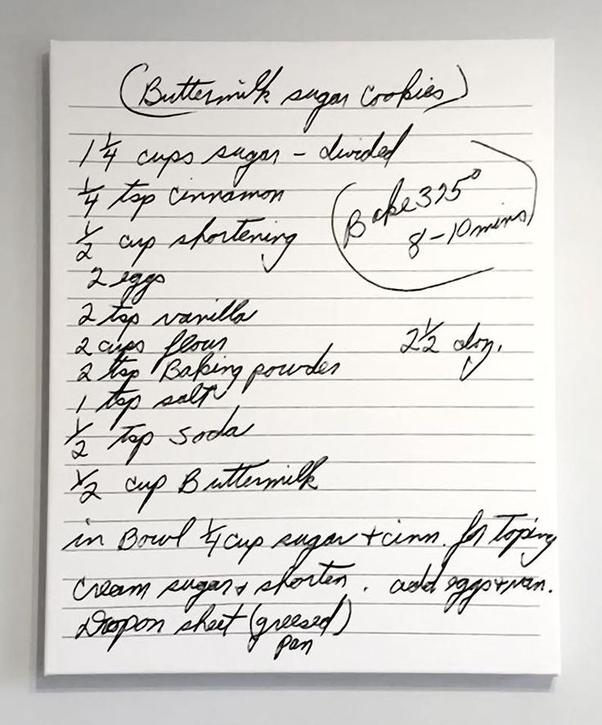 (Buttermilk sugar cookies)
1 1/4 cups sugar - divided
1/4 tsp cinnamon
1/2 cup shortening
Bake 325°
8-10 mins
2 eggs
2 tsp vanilla
2 cups flour
2 1/2 doz.
2 tsp Baking powder
1 tsp salt
1/2 tsp soda
1/2 cup Buttermilk
in Bowl 1/4 cup sugar + cinn. for toping
cream sugar + shorten. add eggs + van.
Drop on sheet (greesed)
pan